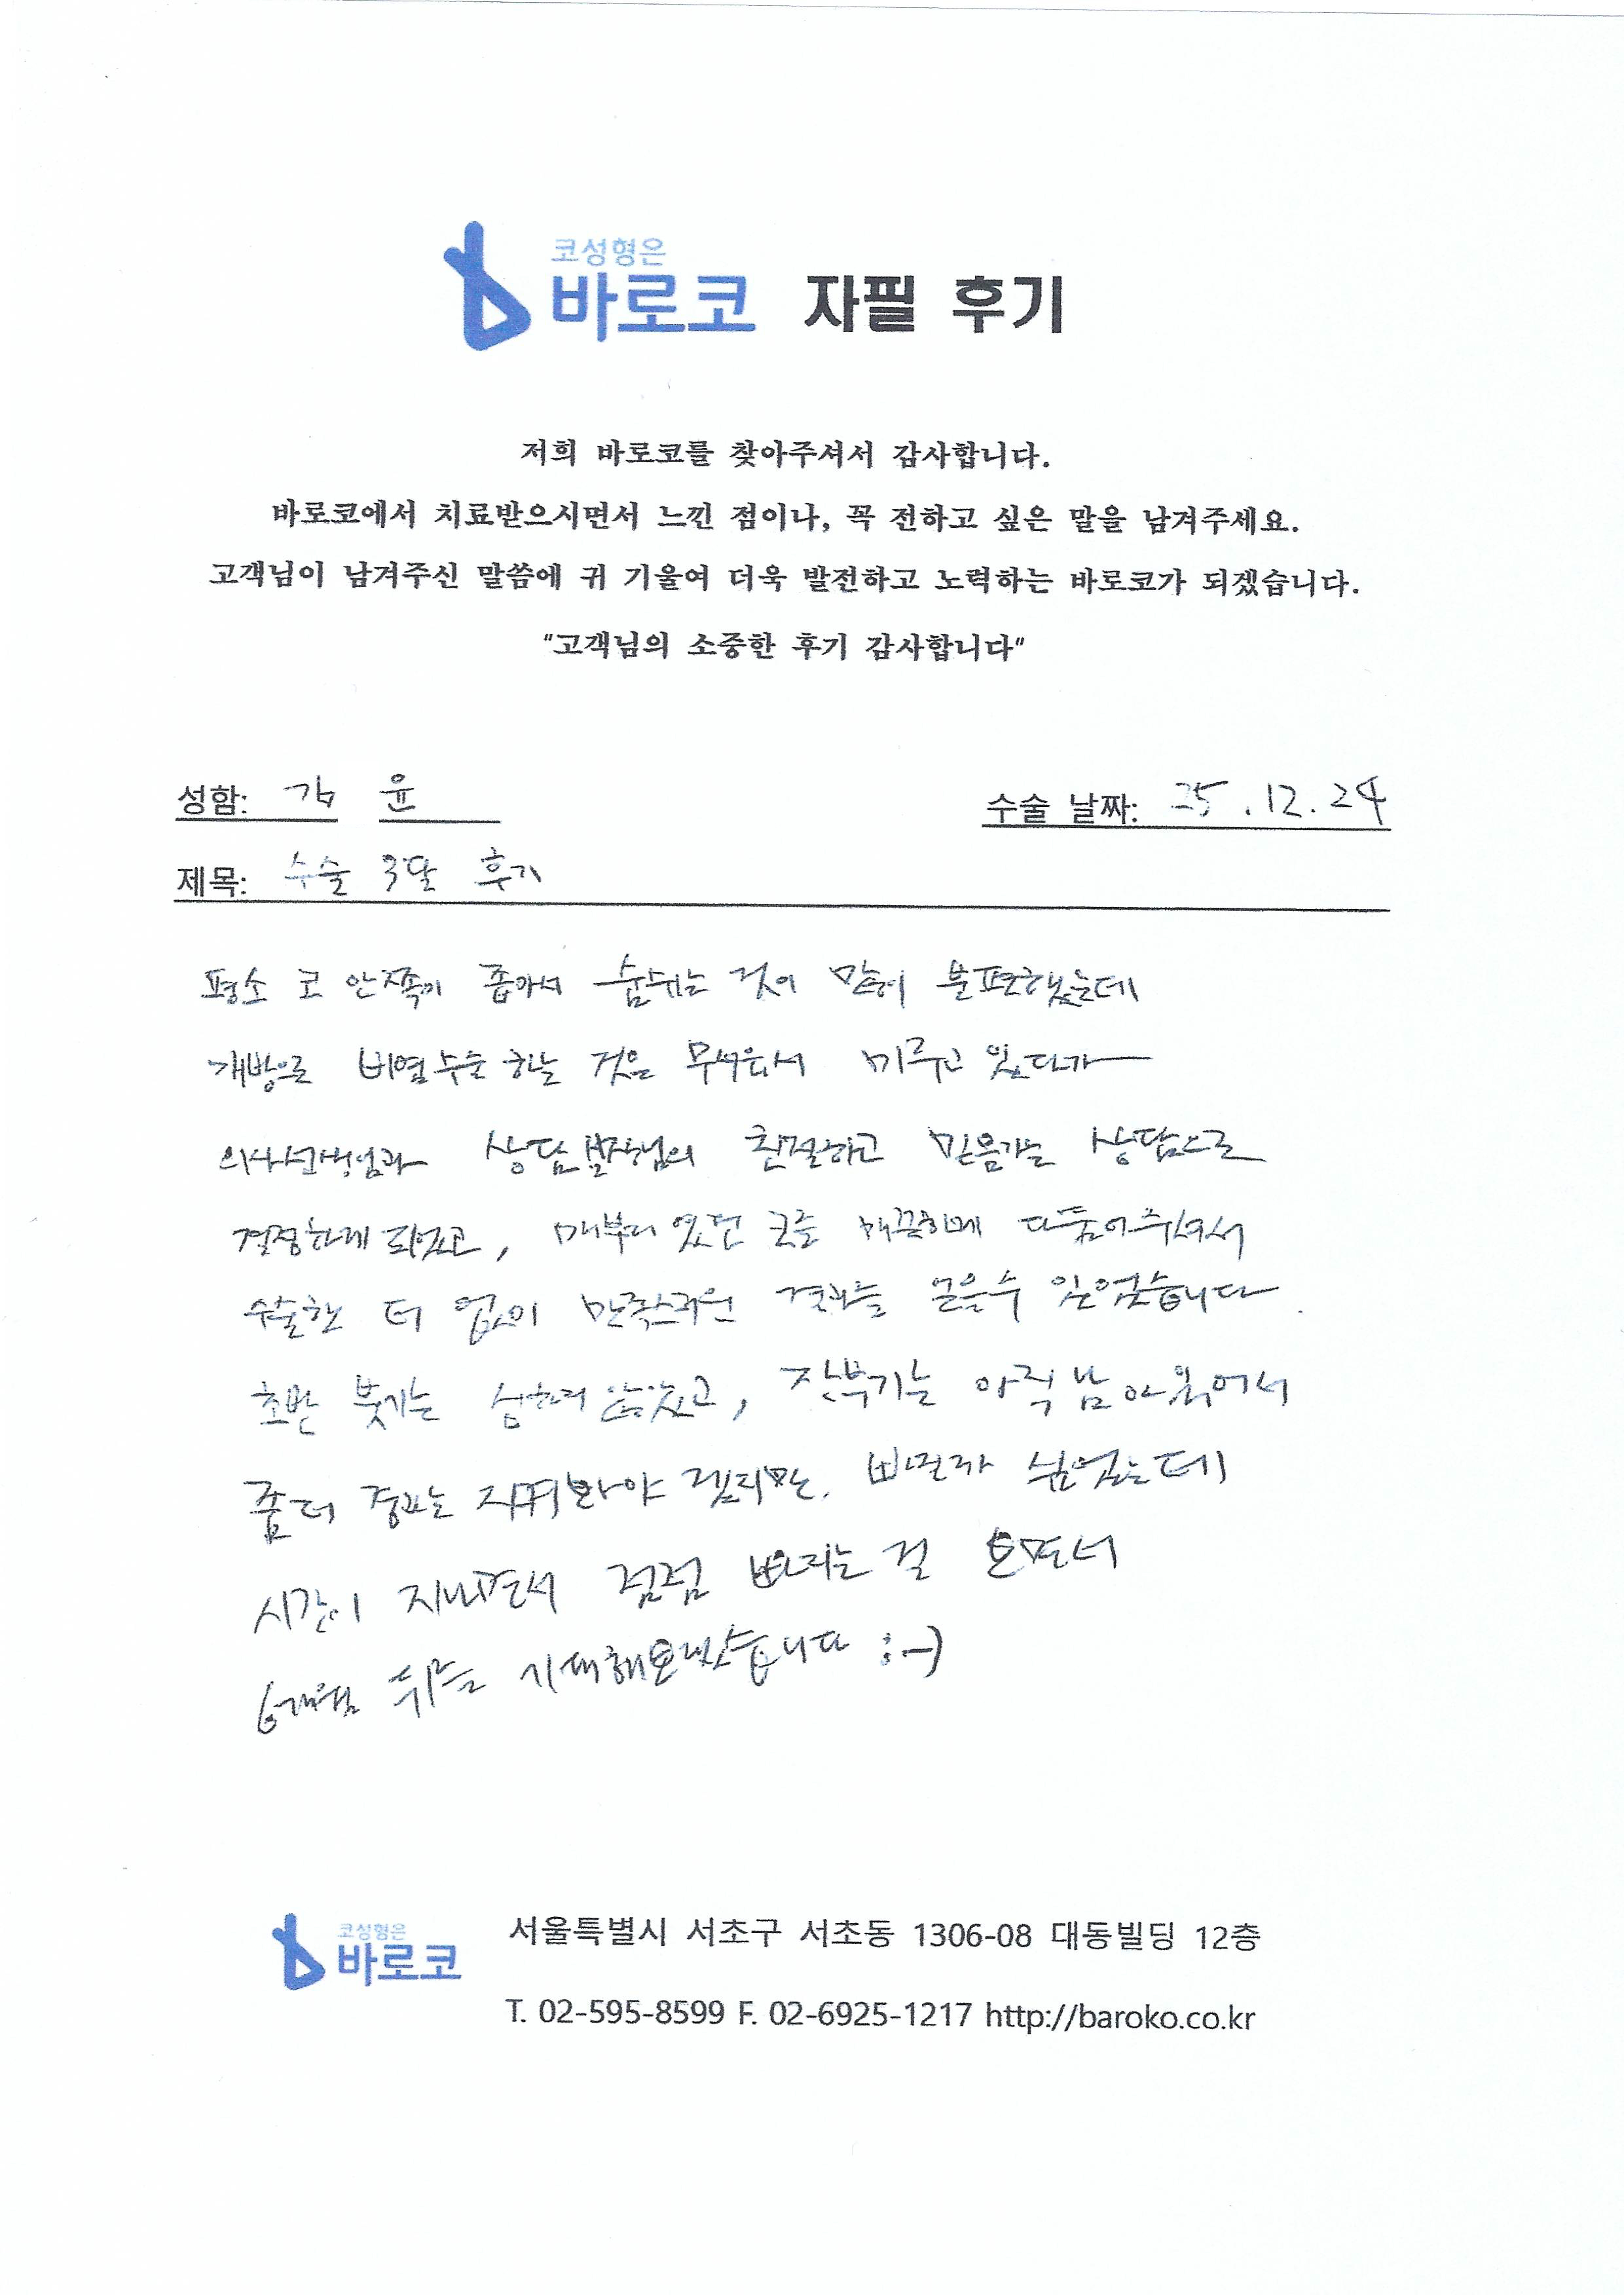 코성형은
바로코 자필 후기
저희 바로코를 찾아주셔서 감사합니다.
바로코에서 치료받으시면서 느낀 점이나, 꼭 전하고 싶은 말을 남겨주세요.
고객님이 남겨주신 말씀에 귀 기울여 더욱 발전하고 노력하는 바로코가 되겠습니다.
"고객님의 소중한 후기 감사합니다"
성함: 윤 수술 날짜: 25.12.24
제목: 수술 3달 후기
평소 코 안쪽이 좁아서 숨쉬는 것이 많이 불편했는데
개방으로 비염수술 하는 것은 무서워서 미루고 있다가
의사선생님과 상담실장님의 친절하고 믿음가는 상담으로
결정하게 되었고, 매부리 였던 코를 매끈하게 다듬어주셔서
수술한 더 없이 만족스러운 결과를 얻을수 있었습니다.
초반 붓기는 심하지 않았고, 잔부기는 아직 남아있어서
좀더 경과는 지켜봐야 겠지만, 빠질까 싶었는데
시간이 지나면서 점점 빠지는 걸 보면서
6개월 뒤를 기대해보겠습니다 :-)
코성형은
바로코
서울특별시 서초구 서초동 1306-08 대동빌딩 12층
T. 02-595-8599 F. 02-6925-1217 http://baroko.co.kr